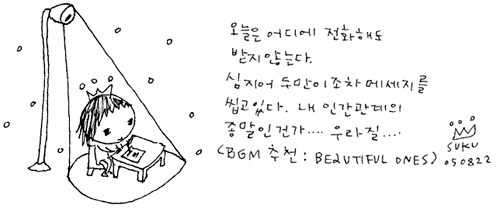 오늘은 어디에 전화해도
받지않는다.
심지어 두만이조차 메세지를
씹고있다. 내 인간관계의
종말인건가.... 우라질....
(BGM 추천 : BEAUTIFUL ONES)
SUKU
050822